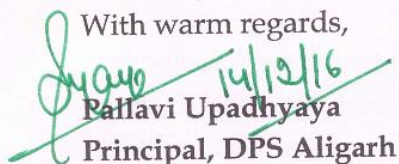 With warm regards,
14/12/16
Pallavi Upadhyaya
Principal, DPS Aligarh